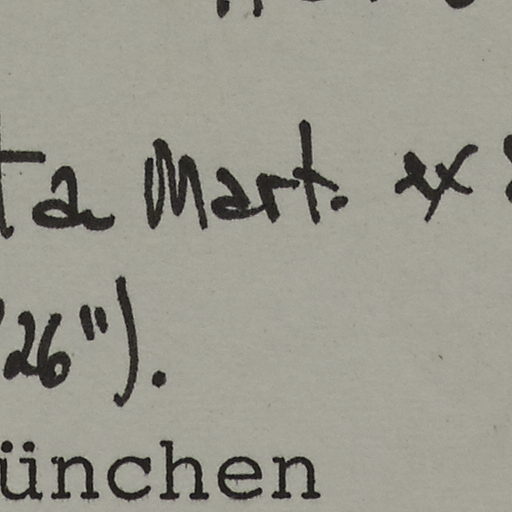 ta Mart. ex
26").
ünchen